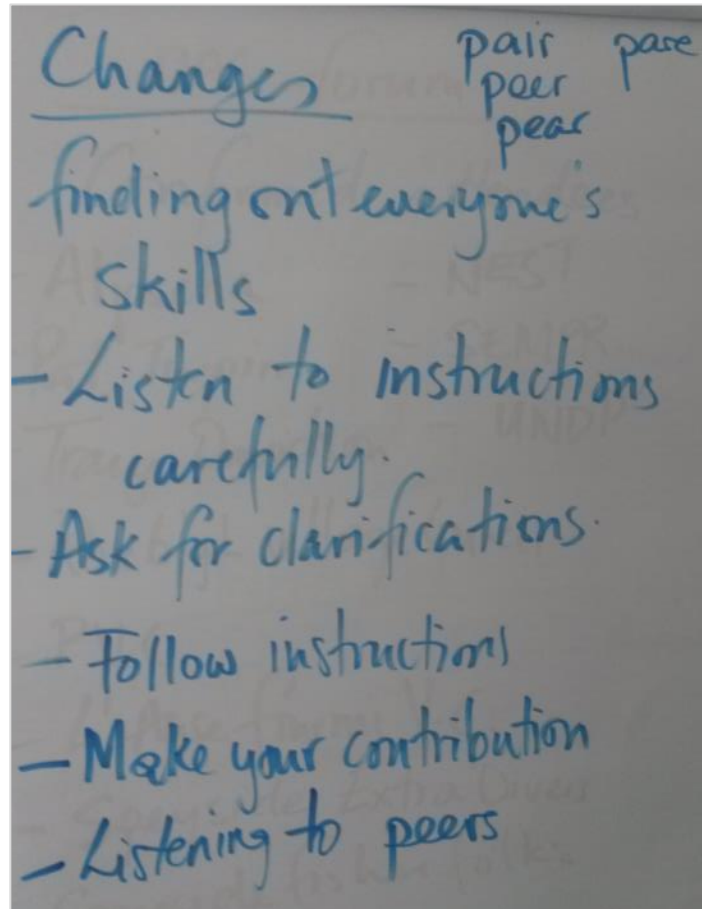 Changes
pair pare
peer
pear
finding out everyone's
skills
- Listen to instructions
carefully.
- Ask for clarifications.
- Follow instructions
- Make your contribution
- Listening to peers
- NEST
- UNDP